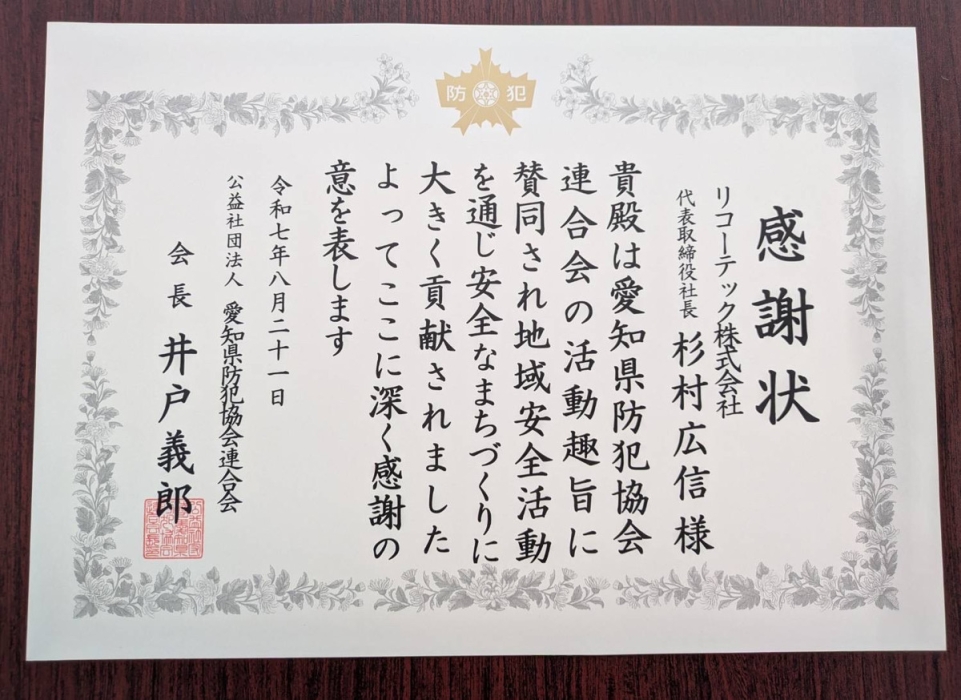 防犯
感謝状
リコーテック株式会社
代表取締役社長 杉村広信様
貴殿は愛知県防犯協会
連合会の活動趣旨に
賛同され地域安全活動
を通じ安全なまちづくりに
大きく貢献されました
よってここに深く感謝の
意を表します
令和七年八月二十一日
公益社団法人 愛知県防犯協会連合会
会長 井戸義郎